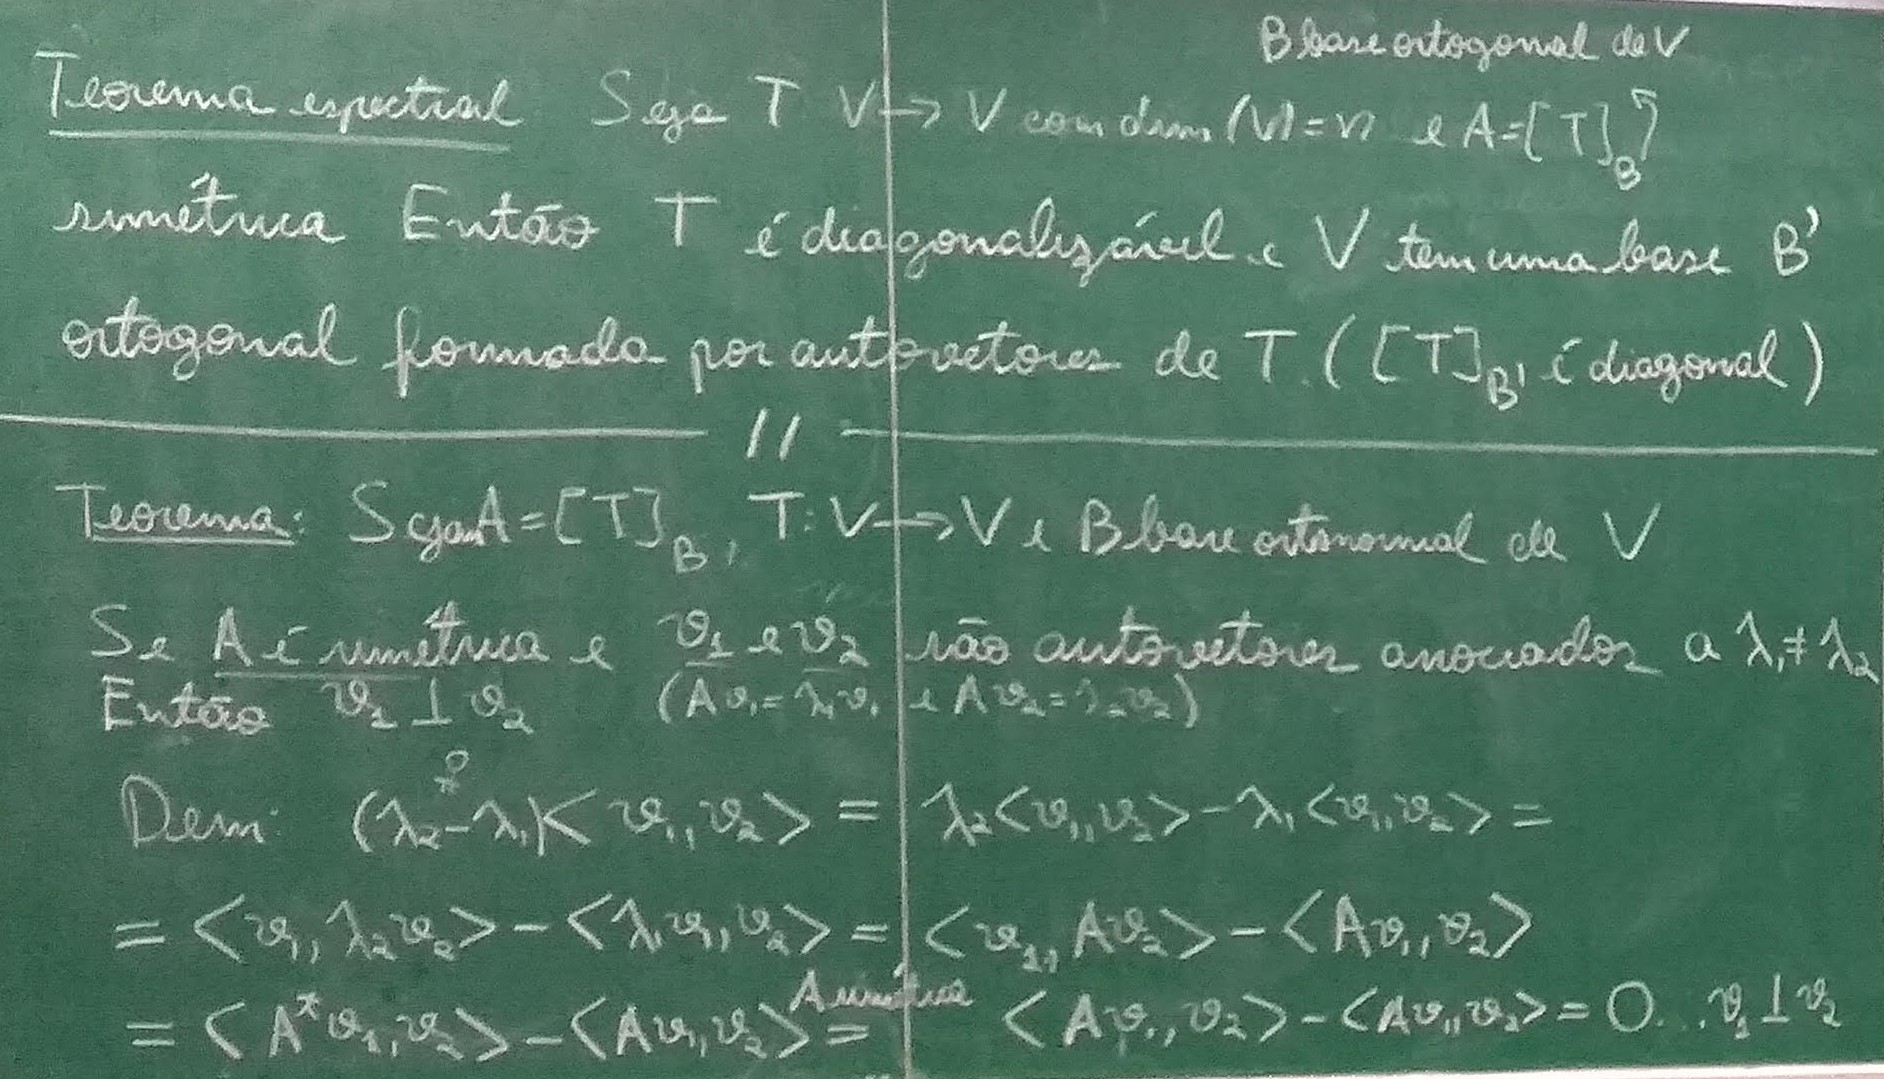 B base ortogonal de V
Teorema espectral Seja T V → V com dim (V) = n e A = [T]_B
simétrica Então T é diagonalizável e V tem uma base B'
ortogonal formada por autovetores de T. ( [T]_B' é diagonal )
//
Teorema: Sejam A = [T]_B, T: V → V e B base ortonormal de V
Se A é simétrica e v₁ e v₂ são autovetores associados a λ₁ ≠ λ₂
Então v₁ ⊥ v₂ (Av₁ = λ₁v₁ e Av₂ = λ₂v₂)
Dem: (λ₂ - λ₁)< v₁, v₂ > = λ₂< v₁, v₂ > - λ₁< v₁, v₂ > =
= < v₁, λ₂v₂ > - < λ₁v₁, v₂ > = < v₁, Av₂ > - < Av₁, v₂ >
A simétrica
= < A*v₁, v₂ > - < Av₁, v₂ > = < Av₁, v₂ > - < Av₁, v₂ > = 0 ... v₁ ⊥ v₂